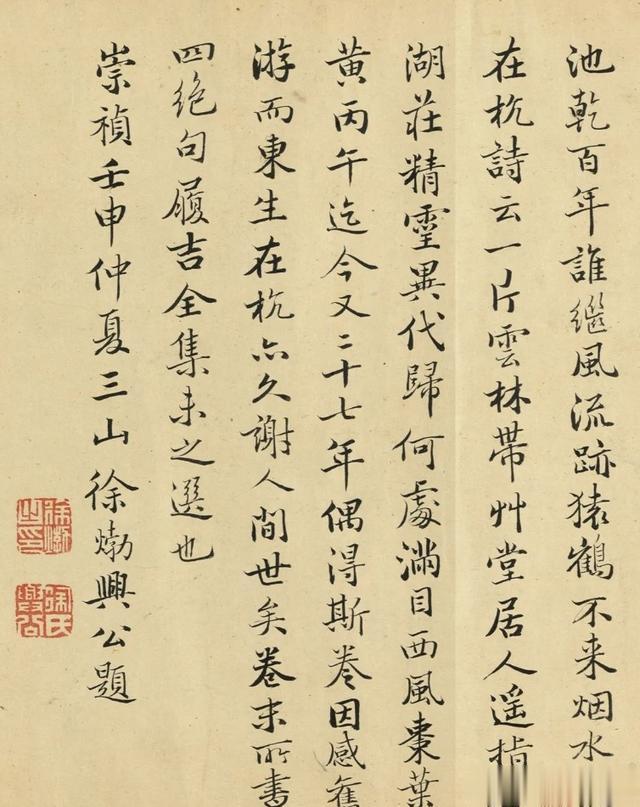 池乾百年誰繼風流跡猿鶴不来烟水
在杭詩云一片雲林帶艸堂居人遥指
湖莊精霊異代歸何處滿目西風棗葉
黄丙午迄今又二十七年偶得斯卷因感舊
游而東生在杭亦久謝人間世矣卷末所書
四絶句履吉全集未之選也
崇禎壬申仲夏三山徐𤊹興公題
徐𤊹之印
徐氏興公